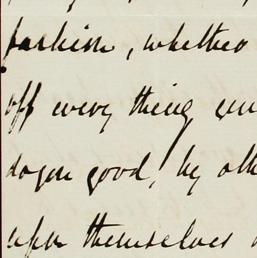 fashion, whether
off every thing
good, by oth
upon themselves